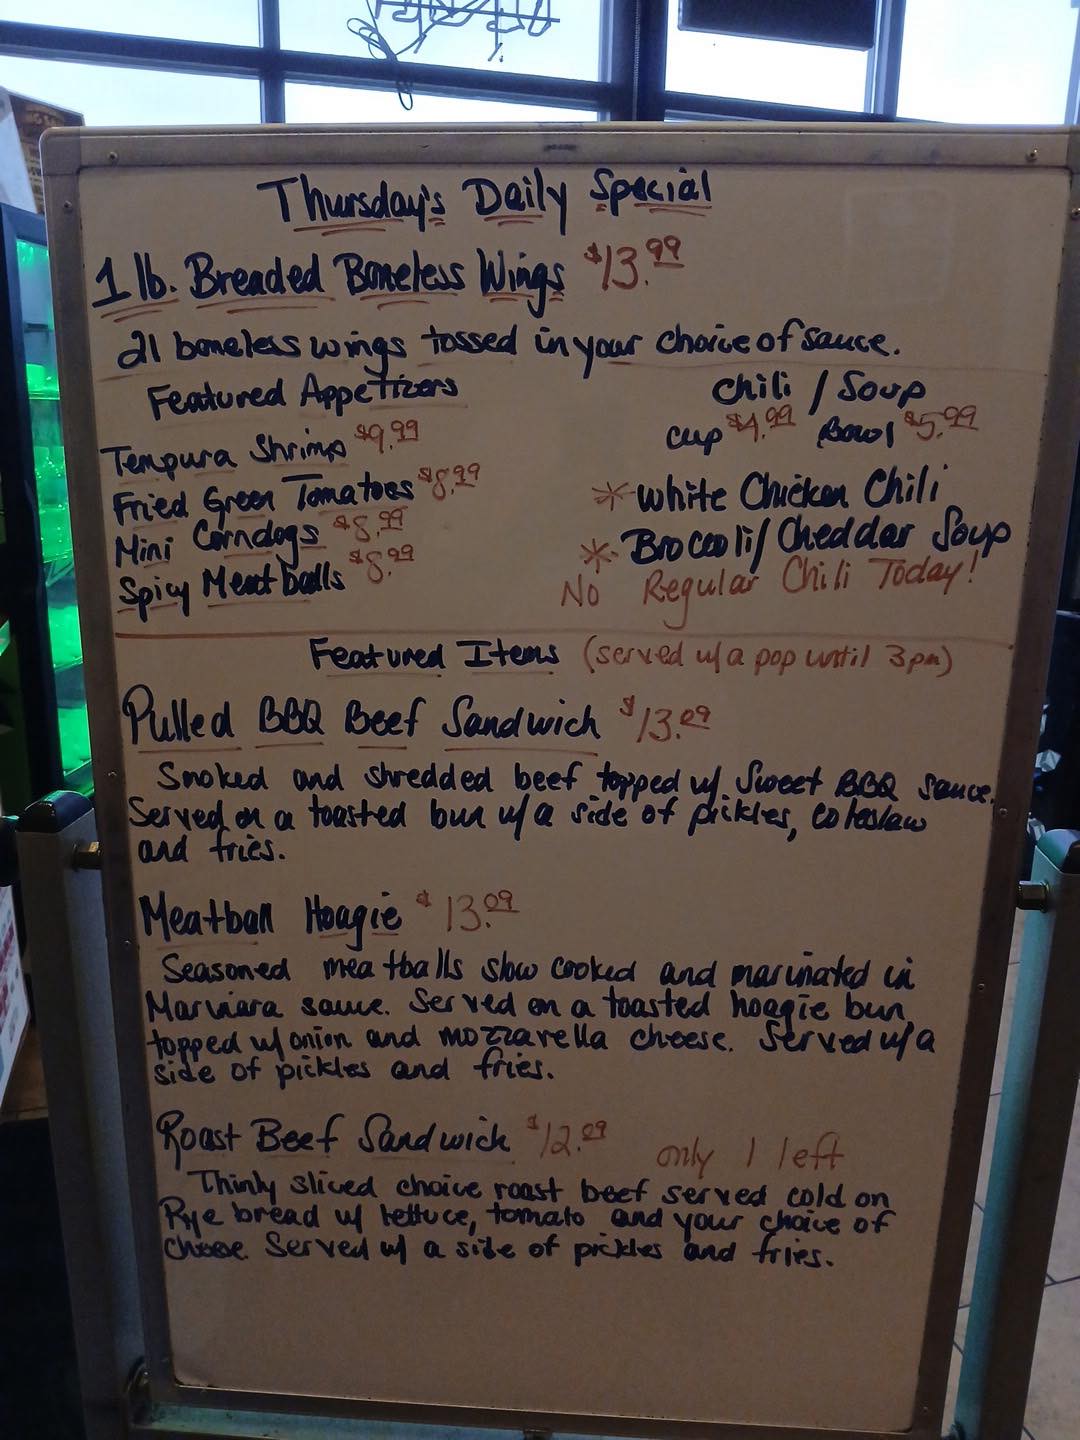 Thursday's Daily Special
1 lb. Breaded Boneless Wings $13.99
21 boneless wings tossed in your choice of sauce.
Featured Appetizers
Tempura Shrimp $9.99
Fried Green Tomatoes $8.99
Mini Corndogs $8.99
Spicy Meatballs $8.99
Chili / Soup
cup $4.99 Bowl $5.99
* White Chicken Chili
* Broccoli/Cheddar Soup
No Regular Chili Today!
Featured Items (served w/a pop until 3pm)
Pulled BBQ Beef Sandwich $13.09
Smoked and shredded beef topped w/ Sweet BBQ sauce.
Served on a toasted bun w/a side of pickles, coleslaw
and fries.
Meatball Hoagie $13.09
Seasoned meatballs slow cooked and marinated in
Marinara sauce. Served on a toasted hoagie bun
topped w/onion and mozzarella cheese. Served w/a
side of pickles and fries.
Roast Beef Sandwich $12.09 only 1 left
Thinly sliced choice roast beef served cold on
Rye bread w/ lettuce, tomato and your choice of
cheese. Served w/ a side of pickles and fries.